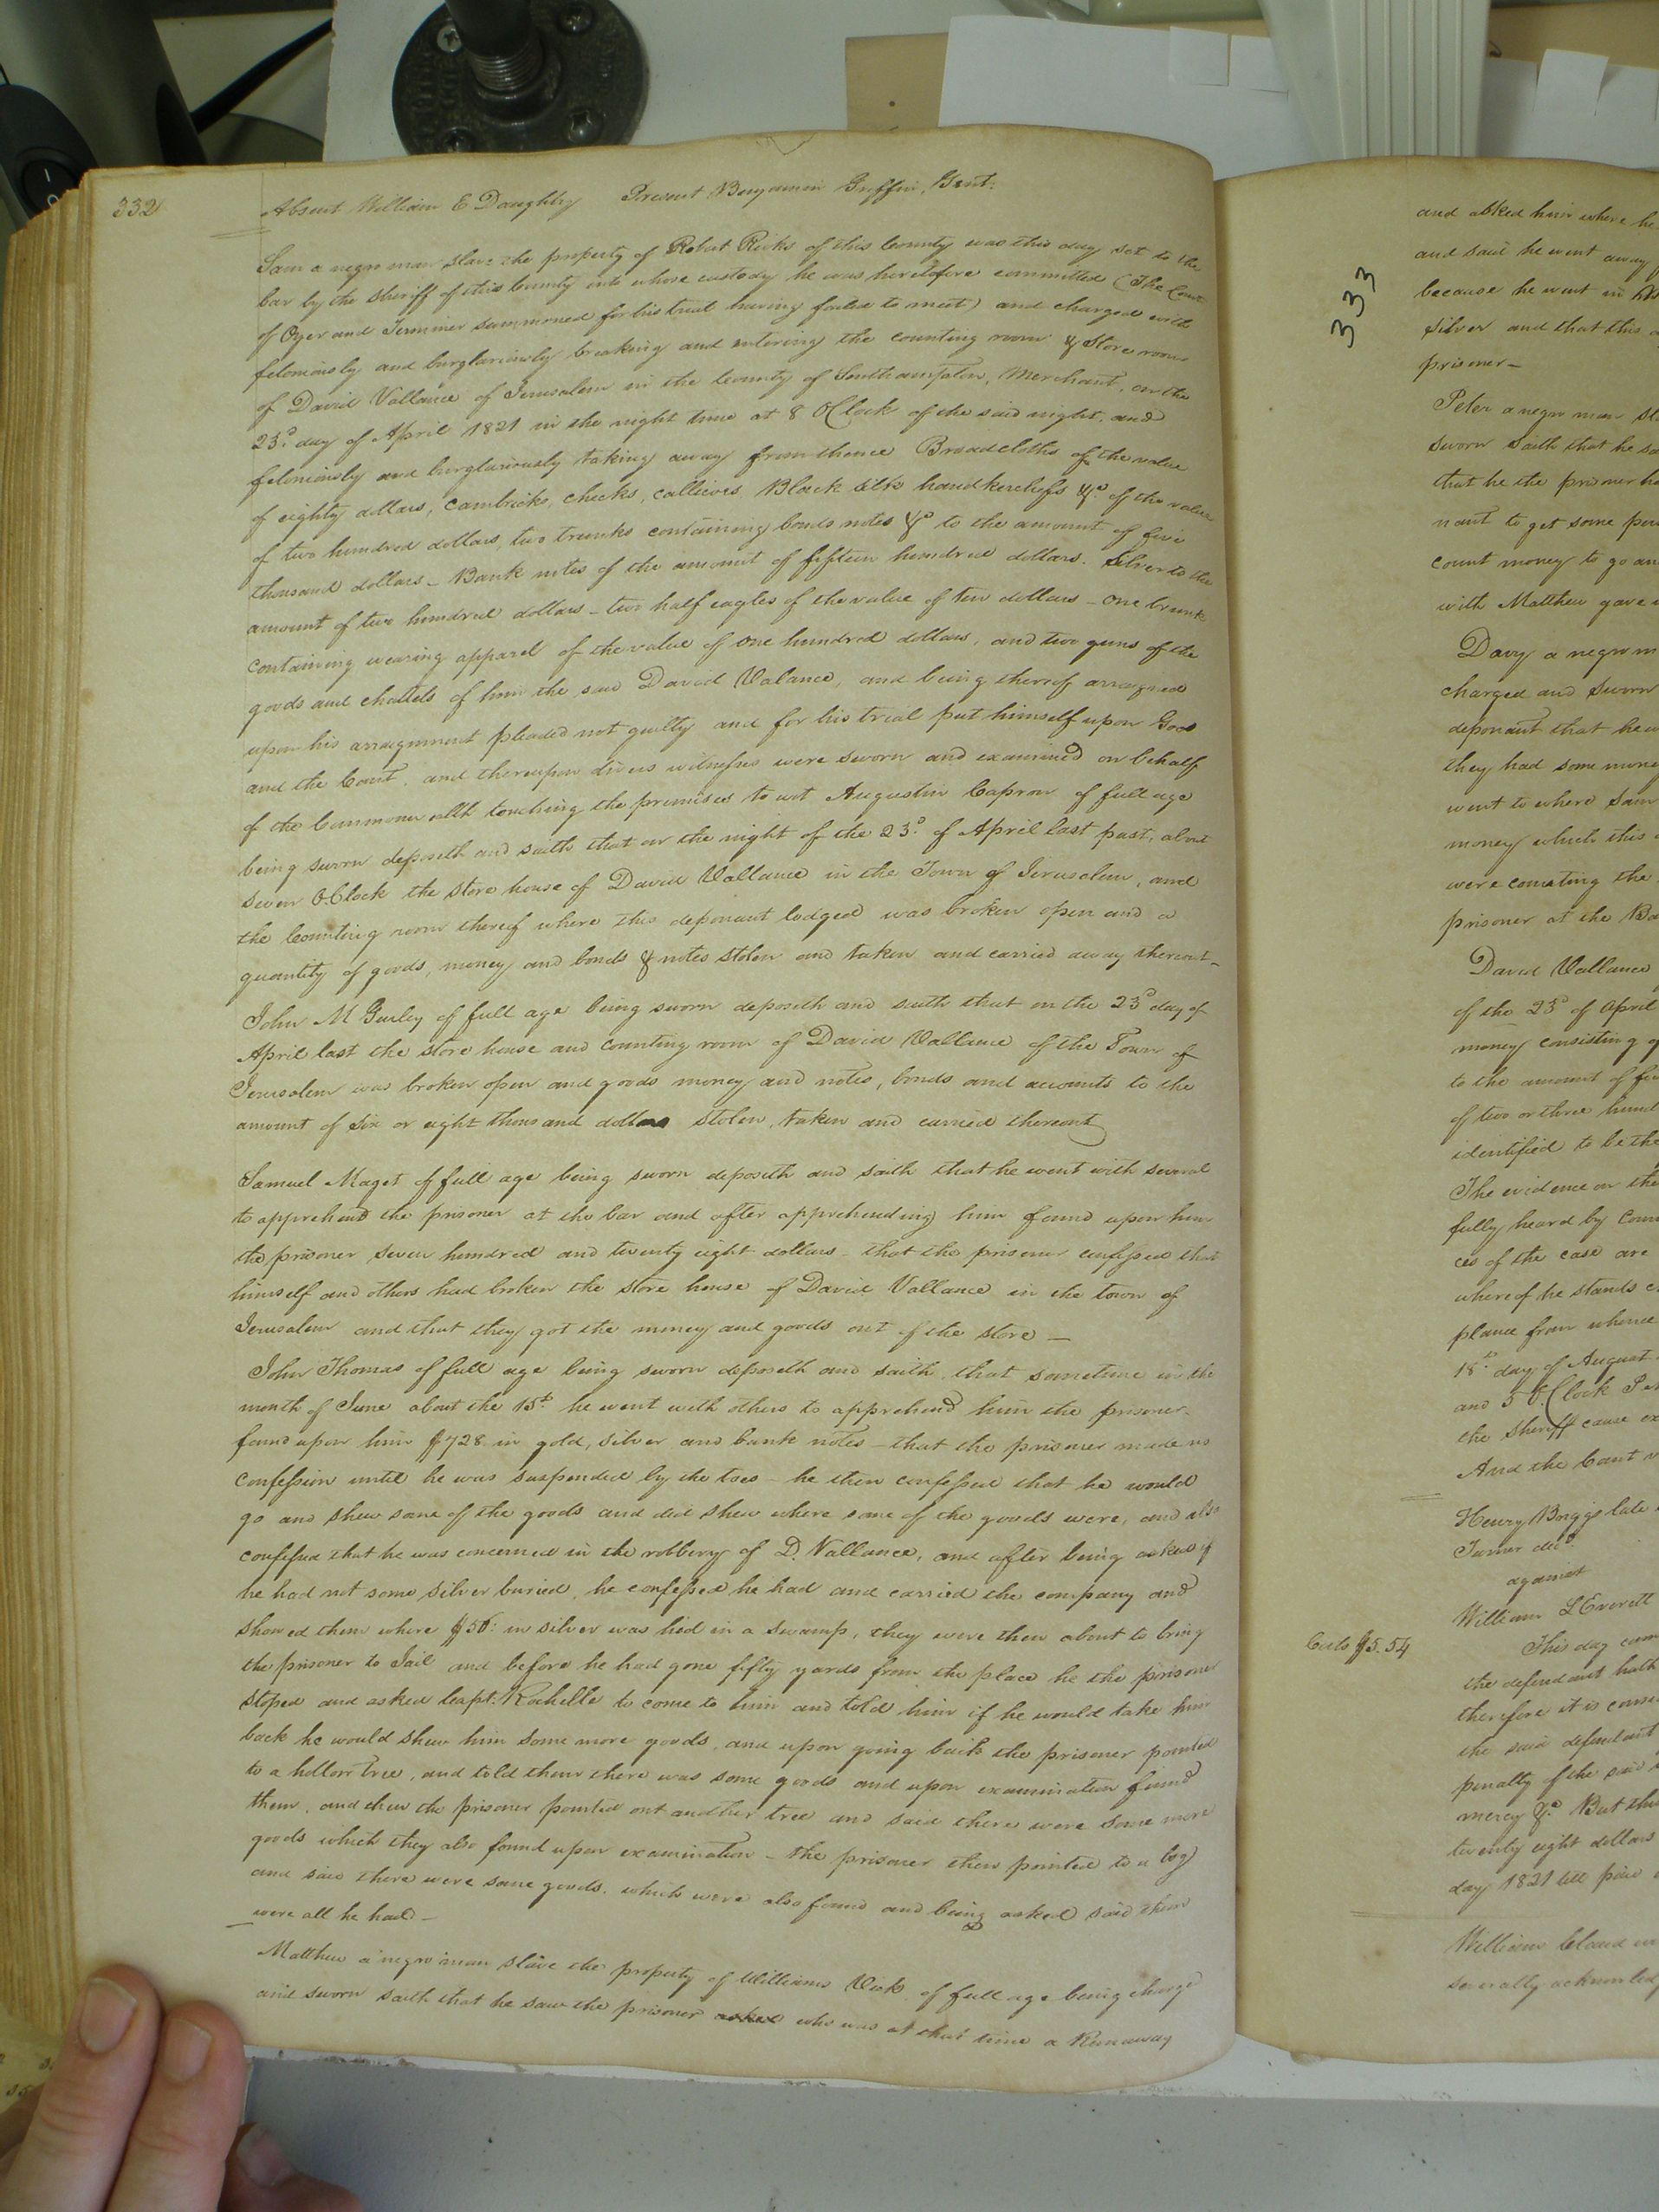 332
Absent William E Daughtry Present Benjamin Griffin, Gent:
Sam a negro man slave the property of Robert Ricks of this County was this day set to the
bar by the Sheriff of this County into whose custody he was heretofore committed (The Court
of Oyer and Terminer summoned for his trial having failed to meet) and charged with
feloniously and burglariously breaking and entering the counting room & Store room
of David Vallance of Jerusalem in the County of Southampton, Merchant, on the
23d. day of April 1821 in the night time at 8 OClock of the said night, and
feloniously and burglariously taking away from thence Broadcloths of the value
of eighty dollars, Cambricks, checks, callicoes, Black silk handkerchiefs &c. of the value
of two hundred dollars, two trunks containing bonds notes &c to the amount of five
thousand dollars - Bank notes of the amount of fifteen hundred dollars. Silver to the
amount of two hundred dollars - two half eagles of the value of ten dollars - One trunk
containing wearing apparel of the value of one hundred dollars, and two guns of the
goods and chattels of him the said David Valance, and being thereof arraigned
upon his arraignment pleaded not guilty and for his trial put himself upon God
and the Court, and thereupon divers witnesses were sworn and examined on behalf
of the Commonwealth touching the premises to wit Augustin Capron of full age
being sworn deposeth and saith that on the night of the 23d. of April last past, about
seven OClock the store house of David Vallance in the Town of Jerusalem, and
the Counting room thereof where this deponant lodged was broken open and a
quantity of goods, money and bonds & notes stolen and taken and carried away thereout -
John M Gurley of full age being sworn deposeth and saith that on the 23d day of
April last the store house and Counting room of David Vallance of the Town of
Jerusalem was broken open and goods money and notes, bonds and accounts to the
amount of six or eight thousand dollars stolen, taken and carried thereout
Samuel Maget of full age being sworn deposeth and saith that he went with several
to apprehend the prisoner at the bar and after apprehending him found upon him
the prisoner seven hundred and twenty eight dollars - that the prisoner confessed that
himself and others had broken the store house of David Vallance in the town of
Jerusalem and that they got the money and goods out of the store —
John Thomas of full age being sworn deposeth and saith, that sometime in the
month of June about the 15th he went with others to apprehend him the prisoner
found upon him $728 in gold, silver and bank notes - that the prisoner made no
confession until he was suspended by the toes - he then confessed that he would
go and shew some of the goods and did shew where some of the goods were, and also
confessed that he was concerned in the robbery of D. Vallance, and after being asked if
he had not some silver buried, he confessed he had and carried the company and
showed them where $50: in silver was hid in a swamp, they were then about to bring
the prisoner to Jail and before he had gone fifty yards from the place he the prisoner
stoped and asked Capt: Rochelle to come to him and told him if he would take him
back he would shew him some more goods, and upon going back the prisoner pointed
to a hollow tree, and told them there was some goods and upon examination found
them, and then the prisoner pointed out another tree and said there were some more
goods which they also found upon examination - the prisoner then pointed to a log
and said there were some goods, which were also found and being asked said them
were all he had -
Matthew a negro man slave the property of Williams Vick of full age being charged
and sworn saith that he saw the prisoner who was at that time a Runaway
333
and asked him where he
and said he went away
because he went in
silver and that this
prisoner -
Peter a negro man
sworn saith that he
that he the prisoner
nant to get some
count money to go
with Matthew gave
Davy a negro
charged and sworn
deponant that he
they had some money
went to where Sam
money which this
were counting the
prisoner at the
David Vallance
of the 23d of April
money consisting
to the amount of
of two or three
identified to be the
The evidence on the
fully heard by
ces of the case are
whereof he stands
plance from whence
18th day of August
and 5 OClock
the Sheriff cause
And the Court
Henry Briggs late
Turner decd.
against
William L Everett
Costs $5.54
This day came
the defendant hath
therefore it is
the said defendant
penalty of the said
mercy &c. But this
twenty eight dollars
day 1821 till paid
William
severally